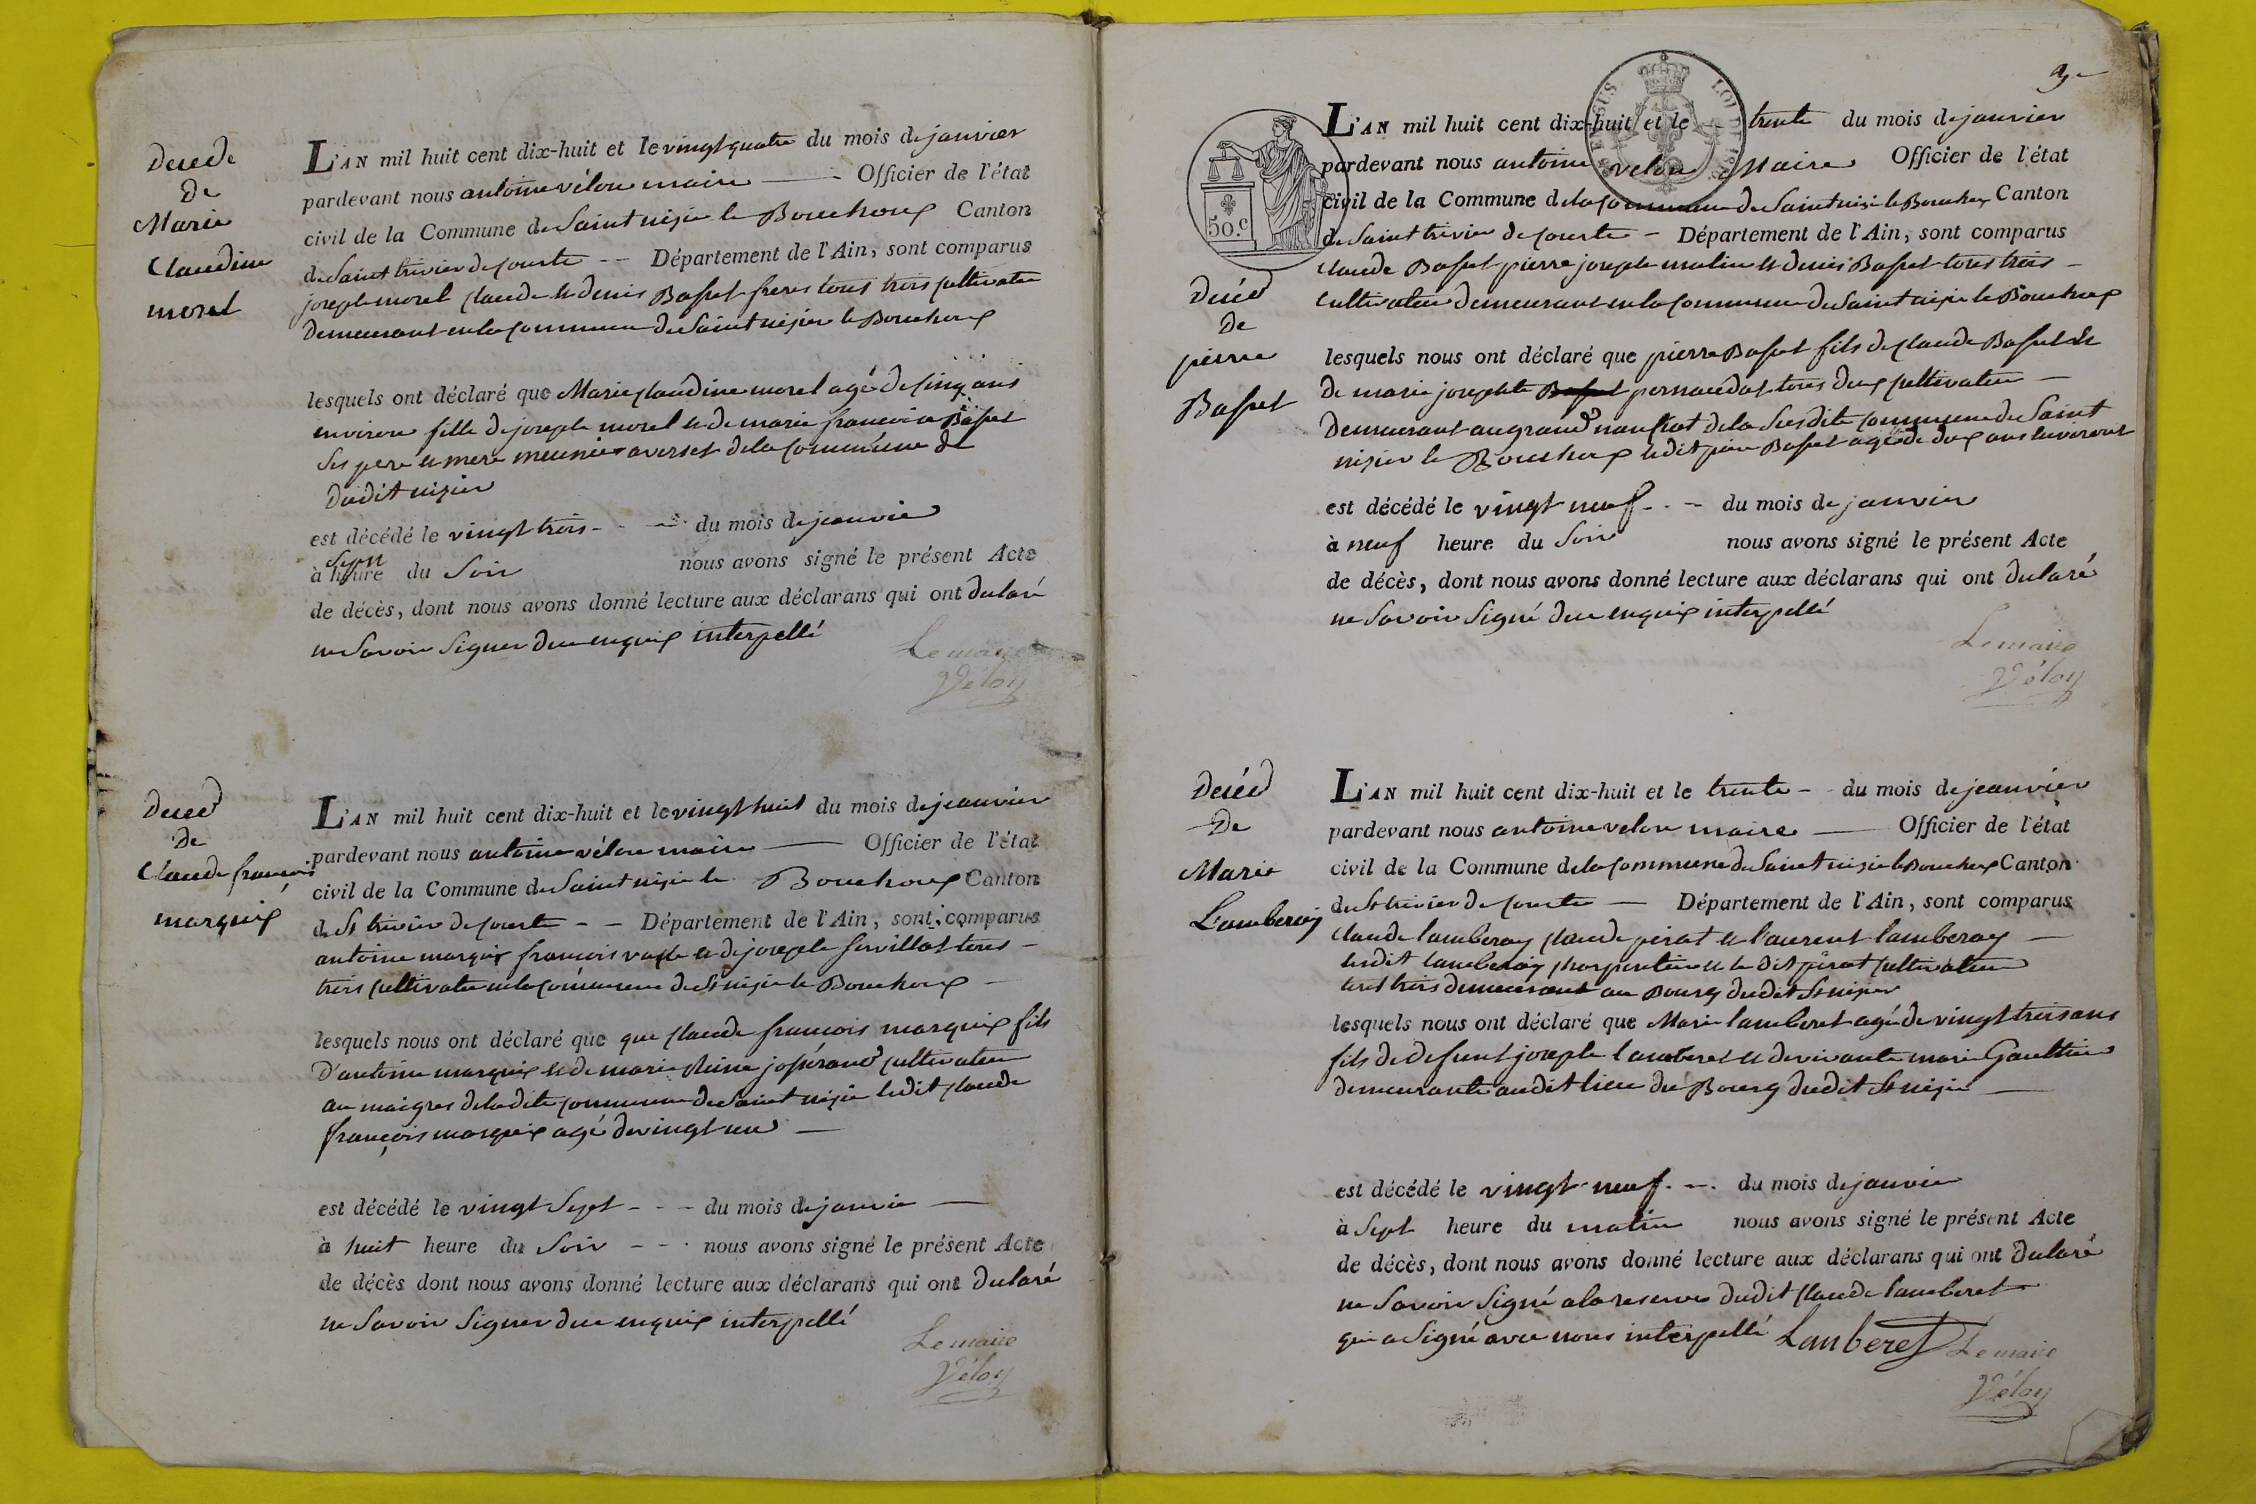 Decede
De
Marie
Claudine
morel
L'AN mil huit cent dix-huit et le vingt quatre du mois de janvier
pardevant nous antoine vélon maire Officier de l'état
civil de la Commune de Saint nizier le Bouchoux Canton
de Saint trivier de courte Département de l'Ain, sont comparus
joseph morel claude et denis Basset freres tous trois cultivateur
Demeurant en la commune de Saint nizier le Bouchoux
lesquels ont déclaré que Marie claudine morel agé de cinq ans
environ fille de joseph morel et de marie francoise Basset
ses pere et mere meunier a verset de la commune de
dudit nizier
est décédé le vingt trois du mois de janvier
à sept heure du Soir nous avons signé le présent Acte
de décès, dont nous avons donné lecture aux déclarans qui ont declaré
ne Savoir Signer de ce enquis interpellé
Le maire
Vélon
Deced
De
Claude francois
marquis
L'AN mil huit cent dix-huit et le vingt huit du mois de jeanvier
pardevant nous antoine vélon maire Officier de l'état
civil de la Commune de Saint nizier le Bouchoux Canton
de St trivier de courte Département de l'Ain, sont comparus
antoine marquis francois et de joseph servillat tous
trois cultivateur en la commune de St nizier le Bouchoux
lesquels nous ont déclaré que que claude francois marquis fils
D'antoine marquis et de marie josserand cultivateur
au maigres de la dite commune de Saint nizier le dit claude
françois marquis agé de vingt un
est décédé le vingt Sept du mois de janvier
à huit heure du Soir nous avons signé le présent Acte
de décès dont nous avons donné lecture aux déclarans qui ont declaré
ne Savoir Signer de ce enquis interpellé
Le maire
Vélon
9
50.c
Decéd
De
pierre
Basset
L'AN mil huit cent dix-huit et le trente du mois de janvier
pardevant nous antoine velon Maire Officier de l'état
civil de la Commune de la commune de Saint nizier le Bouchoux Canton
de Saint trivier de courte Département de l'Ain, sont comparus
claude Basset pierre joseph matin et denis Basset tous trois
cultivateur demeurant en la commune de Saint nizier le Bouchoux
lesquels nous ont déclaré que pierre Basset fils de claude Basset et
de marie josephte Basset pernaudat tous deux cultivateur
Demeurant au grand de la Susdite commune de Saint
nizier le Bouchoux ledit pierre Basset agé de deux ans environt
est décédé le vingt neuf du mois de janvier
à neuf heure du Soir nous avons signé le présent Acte
de décès, dont nous avons donné lecture aux déclarans qui ont declaré
ne Savoir Signé de ce enquis interpellé
Le maire
Vélon
Decéd
De
Marie
Lamberay
L'AN mil huit cent dix-huit et le trente du mois de jeanvier
pardevant nous antoine velon maire Officier de l'état
civil de la Commune de la commune de Saint nizier le Bouchoux Canton
de St trivier de courte Département de l'Ain, sont comparus
claude lamberay claude pirat et laurent lamberay
lesdit lamberay charpentier et le dit pirat cultivateur
tous trois demeurant au Bourg dudit St nizier
lesquels nous ont déclaré que Marie lamberet agé de vingt trois ans
fils de defunt joseph lamberet et de vivante marie Gaulthier
demeurante audit lieu du Bourg dudit St nizier
est décédé le vingt neuf du mois de janvier
à Sept heure du matin nous avons signé le présent Acte
de décès, dont nous avons donné lecture aux déclarans qui ont declaré
ne Savoir Signé a la reserve dudit claude lamberet
qui a Signé avec nous interpellé Lamberet Le maire
Vélon